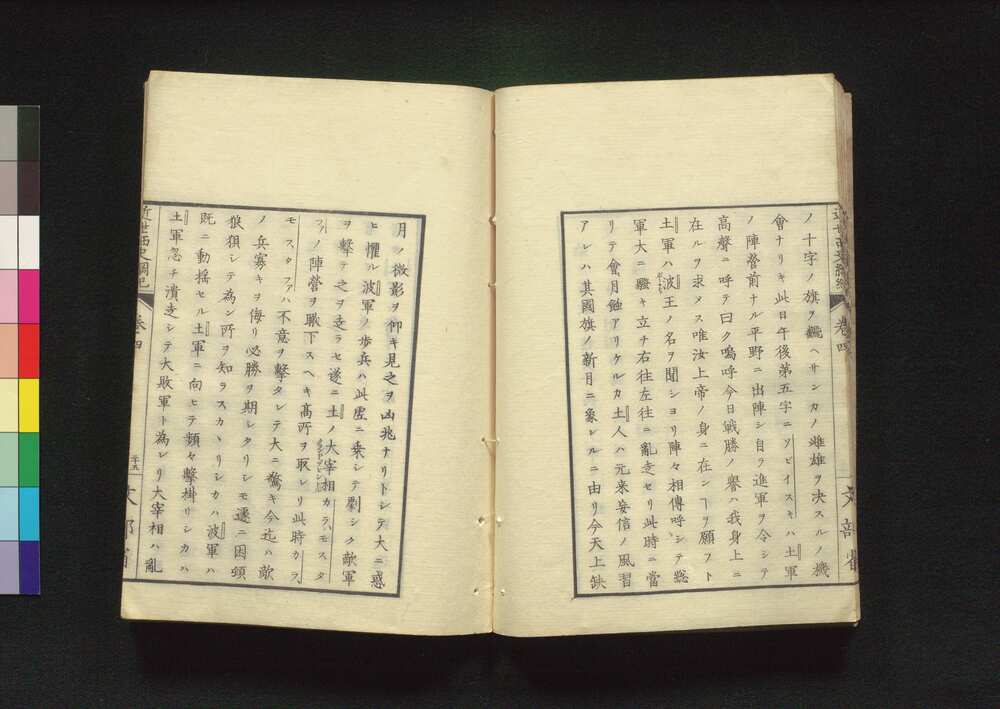 ノ十字ノ旗ヲ飜ヘサンカノ雌雄ヲ決スルノ機
會ナリキ此日午後第五字ニソビイスキハ土軍
ノ陣營前ナル平野ニ出陣シ自ラ進軍ヲ令シテ
高聲ニ呼テ曰ク嗚呼今日戦勝ノ譽ハ我身上ニ
在ルヲ求メス唯汝上帝ノ身ニ在ンヿヲ願フト
土軍ハ波王ノ名ヲ聞シヨリ陣々相傳呼シテ總
軍大ニ騷キ立チ右往左往ニ亂走セリ此時ニ當
リテ會月蝕アリケルカ土人ハ元来妄信ノ風習
アレハ其國旗ノ新月ニ象レルニ由リ今天上缺
月ノ微影ヲ仰キ見之ヲ凶兆ナリトシテ大ニ惑
ヒ懼ル波軍ノ歩兵ハ此虚ニ乗シテ劇シク敵軍
ヲ擊テ之ヲ走ラセ遂ニ土ノ大宰相カラ、モスタ
ファノ陣營ヲ瞰下スヘキ髙所ヲ取レリ此時カラ、
モスタファハ不意ヲ擊タレテ大ニ驚キ今迄ハ敵
ノ兵寡キヲ侮リ必勝ヲ期レタリシモ遽ニ困頓
狼狽シテ為ン所ヲ知ラスカヽリシカハ波軍ハ
既ニ動揺セル土軍ニ向ヒテ頻々擊掛リシカハ
土軍忽チ潰走シテ大敗軍ト為レリ大宰相ハ亂
近世西史綱紀
卷四
文部省
卷四
文部省